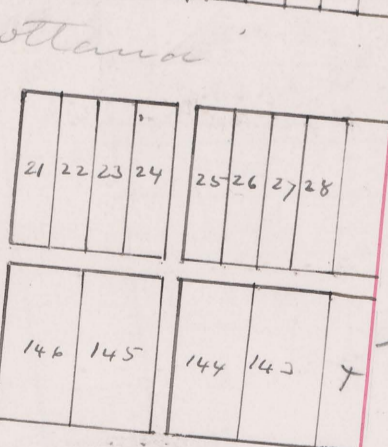 21 22 23 24 25 26 27 28
146 145 144 143